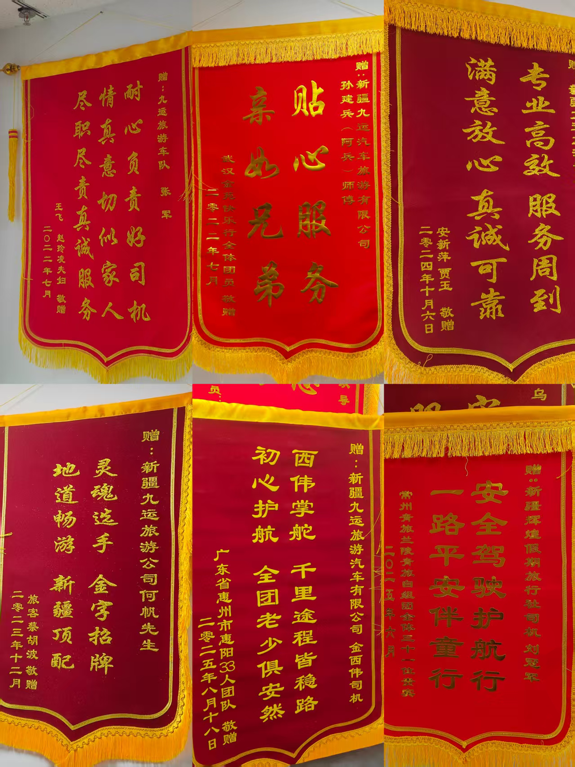 赠：九运旅游车队 张军
耐心负责好司机
情真意切似家人
尽职尽责真诚服务
王飞 赵玲凌夫妇 敬赠
二〇二二年七月
赠：新疆九运汽车旅游有限公司
孙建兵（阿兵）师傅
贴心服务
亲如兄弟
全体团员 敬赠
二〇二二年七月
赠：新疆
专业高效 服务周到
满意放心 真诚可靠
安新萍 贾玉 敬赠
二零二四年十月六日
赠：新疆九运旅游公司何帆先生
灵魂选手 金字招牌
地道畅游 新疆顶配
旅客蔡胡波 敬赠
二零二三年十二月
赠：新疆九运旅游汽车有限公司 金西伟司机
西伟掌舵 千里途程皆稳路
初心护航 全团老少俱安然
广东省惠州市惠阳33人团队 敬赠
二零二五年八月十八日
乌
赠：新疆辉煌假期旅行社司机
安全驾驶护航行
一路平安伴童行
二〇二五年六月